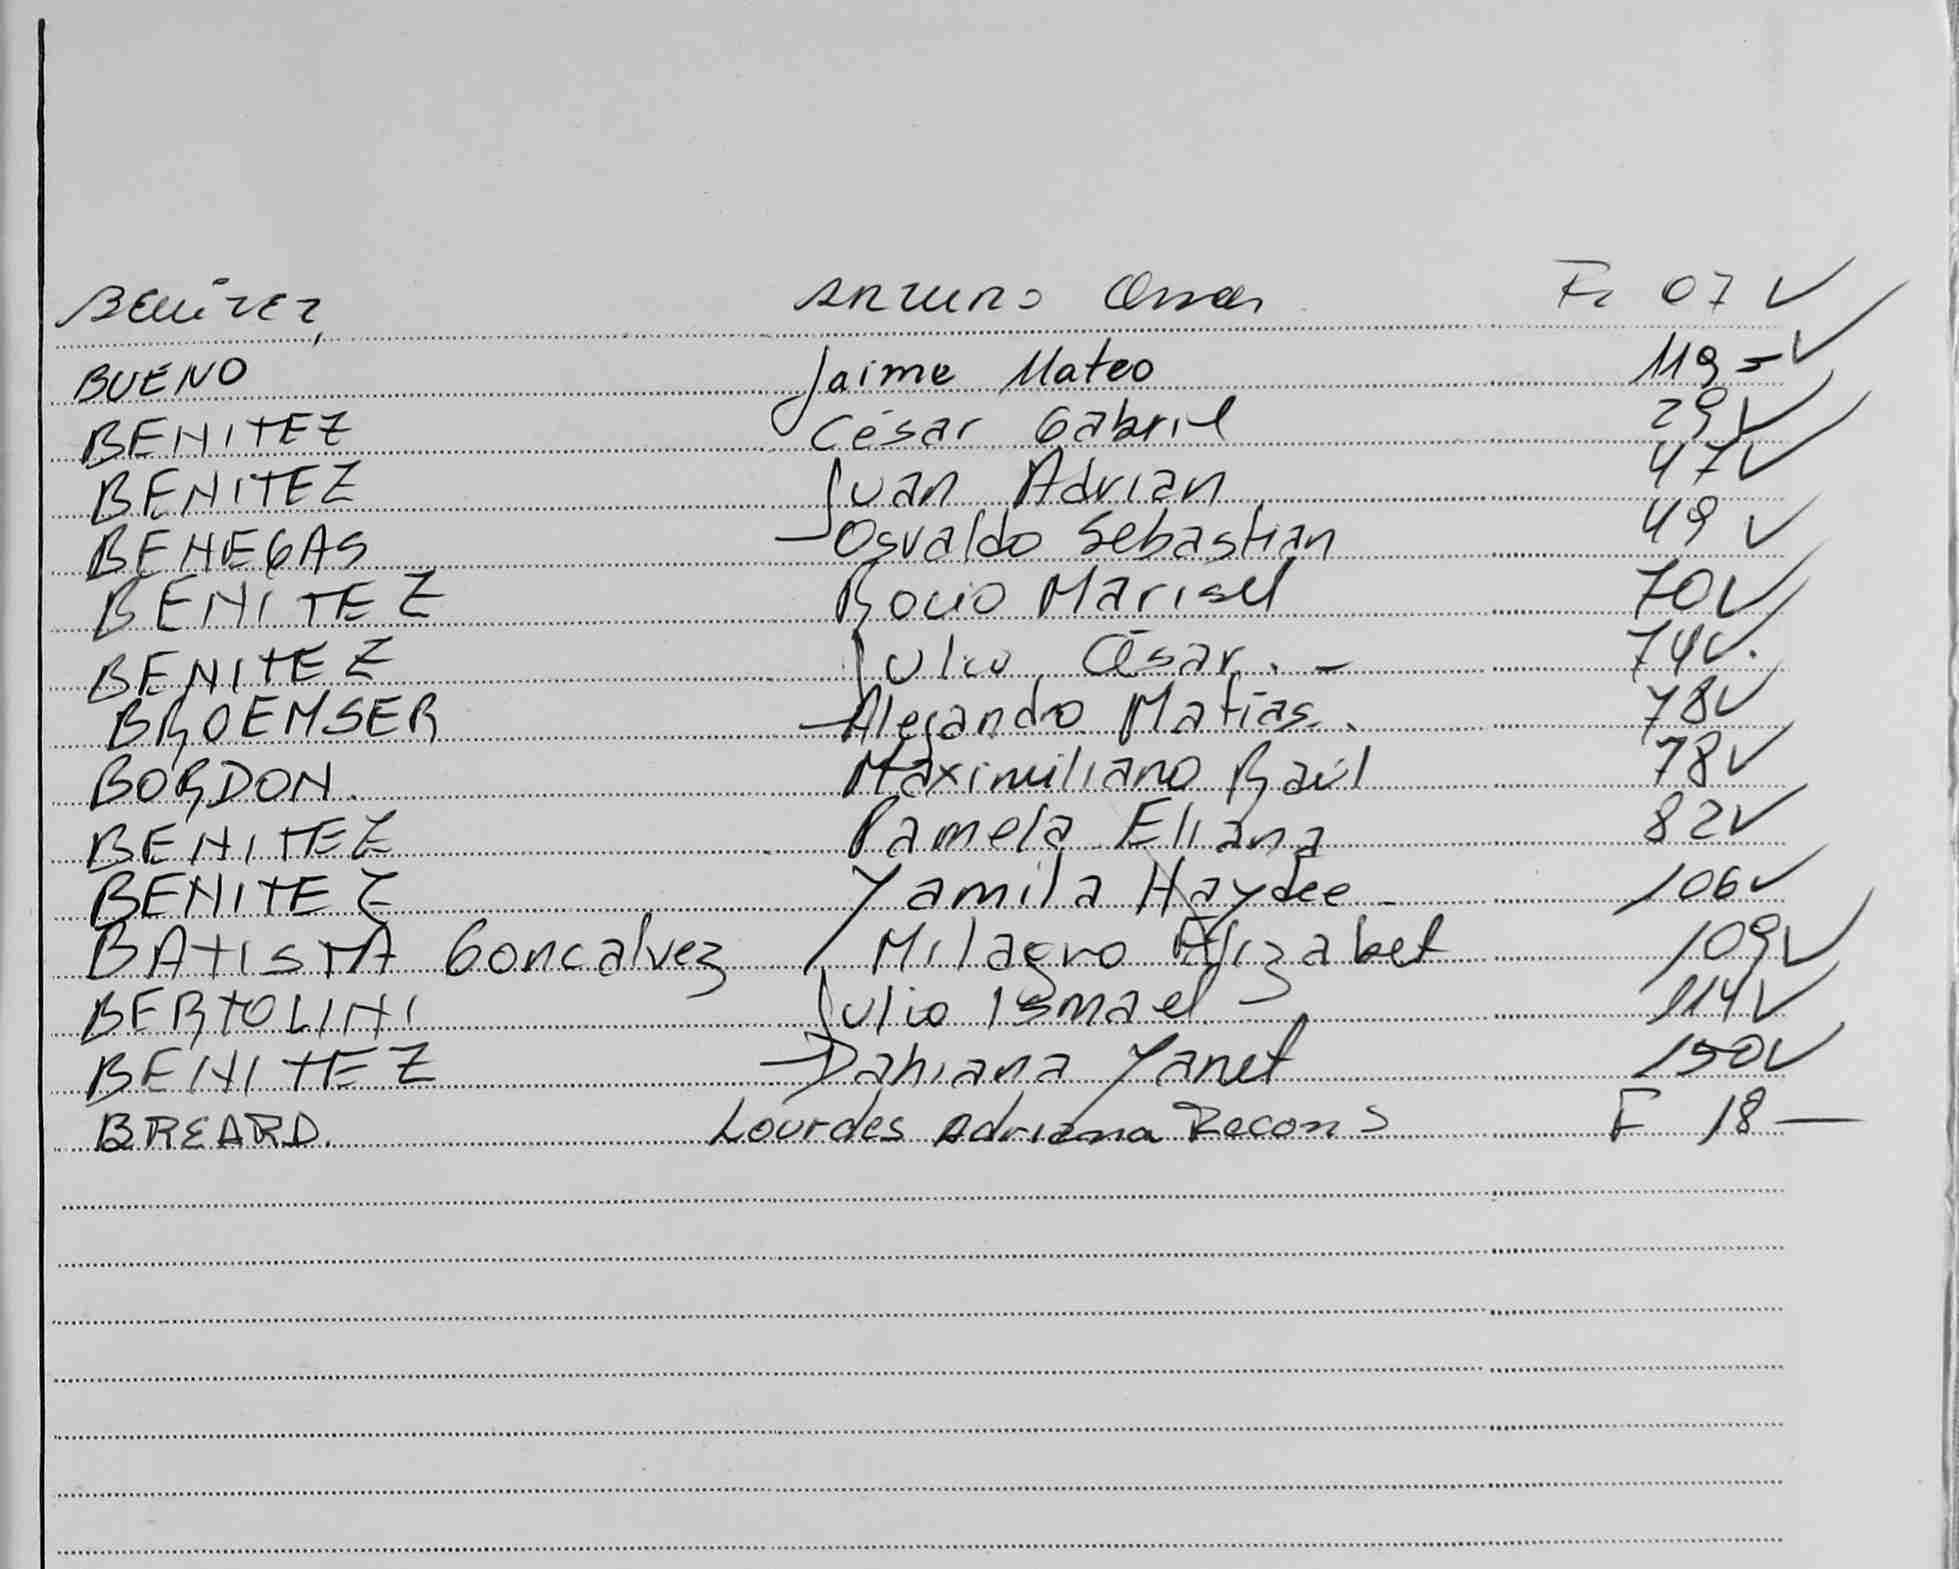 BENITEZ, ARTURO Omar Fr 07 ✓
BUENO Jaime Mateo 119 - ✓
BENITEZ César Gabriel 29 ✓
BENITEZ Juan Adrian 47 ✓
BENEGAS Osvaldo Sebastian 49 ✓
BENITEZ Rocio Marisel 70 ✓
BENITEZ Julio César. - 74 ✓.
BROEMSER Alejandro Matías. 78 ✓
BORDON. Maximiliano Raúl 78 ✓
BENITEZ Pamela Eliana 82 ✓
BENITEZ Yamila Haydee 106 ✓
BATISTA Goncalvez Milagro Elizabet 109 ✓
BERTOLINI Julio Ismael 114 ✓
BENITEZ Dahiana Yanet 150 ✓
BREARD. Lourdes Adriana F 18 —